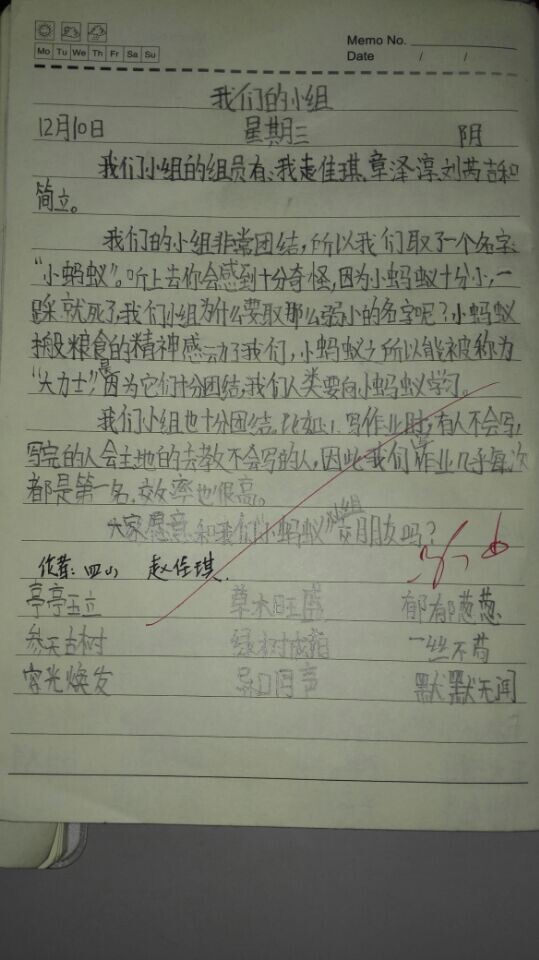 Memo No.
Mo Tu We Th Fr Sa Su
Date / /
我们的小组
12月10日 星期三 阴
我们小组的组员有、我赵佳琪、章泽淳、刘芮吉和
简立。
我们的小组非常团结,所以我们取了一个名字:
“小蚂蚁”。听上去你会感到十分奇怪,因为小蚂蚁十分小,一
踩就死了,我们小组为什么要取那么弱小的名字呢?小蚂蚁
搬粮食的精神感动了我们,小蚂蚁之所以能被称为
“大力士”,是因为它们十分团结,我们人类要向小蚂蚁学习。
我们小组也十分团结。比如:1.写作业时,有人不会写,
写完的人会主地的去教不会写的人,因此我们写作业几乎每次
都是第一名,效率也很高。
大家愿意和我们“小蚂蚁”小组交朋友吗?
作者:四(1) 赵佳琪
亭亭玉立 草木旺盛 郁郁葱葱
参天古树 绿树成荫 一丝不苟
容光焕发 异口同声 默默无闻